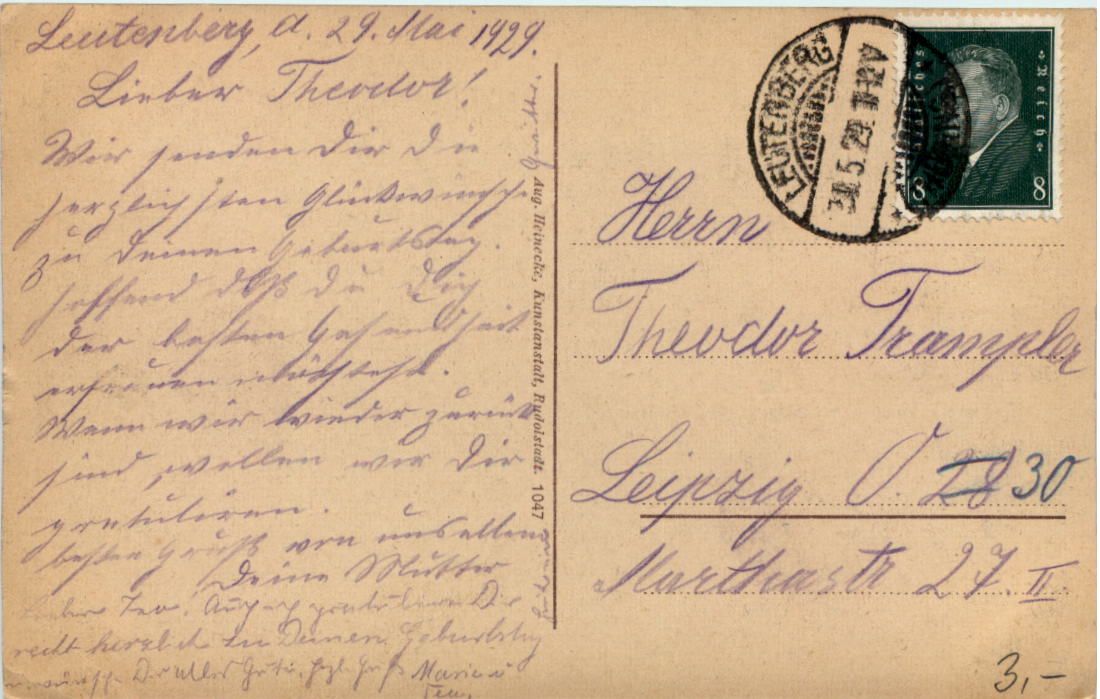 Leutenberg, d. 29. Mai 1929.
Lieber Theodor!
Wir senden Dir die
herzlichsten Glückwünsche
zu Deinen Geburtstag.
hoffend daß du Dich
der besten Gesundheit
erfreuen möchtest.
Wenn wir wieder zurück
sind, wollen wir Dir
gratulieren.
besten Gruß von uns allen
Deine Mutter
Lieber Teo! Auch gratulieren Dir
recht herzlich zu Deinen Geburtstag
wünsche Dir alles Gute, hzl. Gruß Marie u
Aug. Heinecke, Kunstanstalt, Rudolstadt. 1047
LEUTENBERG
30.5.29. 11-12V
Deutsches Reich
8 8
Herrn
Theodor Trampler
Leipzig O. 28 30
Marthastr 27. II.
3,-